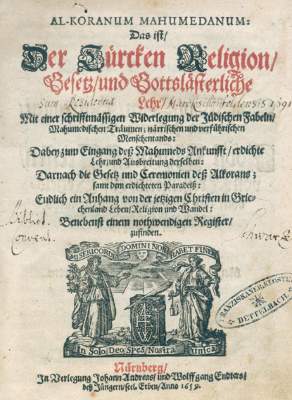 AL-KORANUM MAHUMEDANUM:
Das ist/
Der Türcken Religion/
Gesetz/und Gottslästerliche
Lehr/
Mit einer schrifftmässigen Widerlegung der Jüdischen Fabeln/
Mahumedischen Träumen/ närrischen und verführischen
Menschentands:
Dabey zum Eingang deß Mahumeds Ankunfft/ erdichte
Lehr/ und Außbreitung derselben:
Darnach die Gesetz und Ceremonien deß Alkorans;
samt dem erdichteten Paradeiß:
Endlich ein Anhang von der jetzigen Christen in Grie-
chenland Leben/Religion und Wandel:
Benebenst einem nothwendigen Register/
zufinden.
MISERICORDIA DOMINI NON HABET FINEM
In Solo Deo Spes Nostra Unica
FRANZISKANERKLOSTER
DETTELBACH
Nürnberg/
In Verlegung Johann Andreas/ und Wolffgang Endters/
deß Jüngern/seel. Erben/Anno 1659.